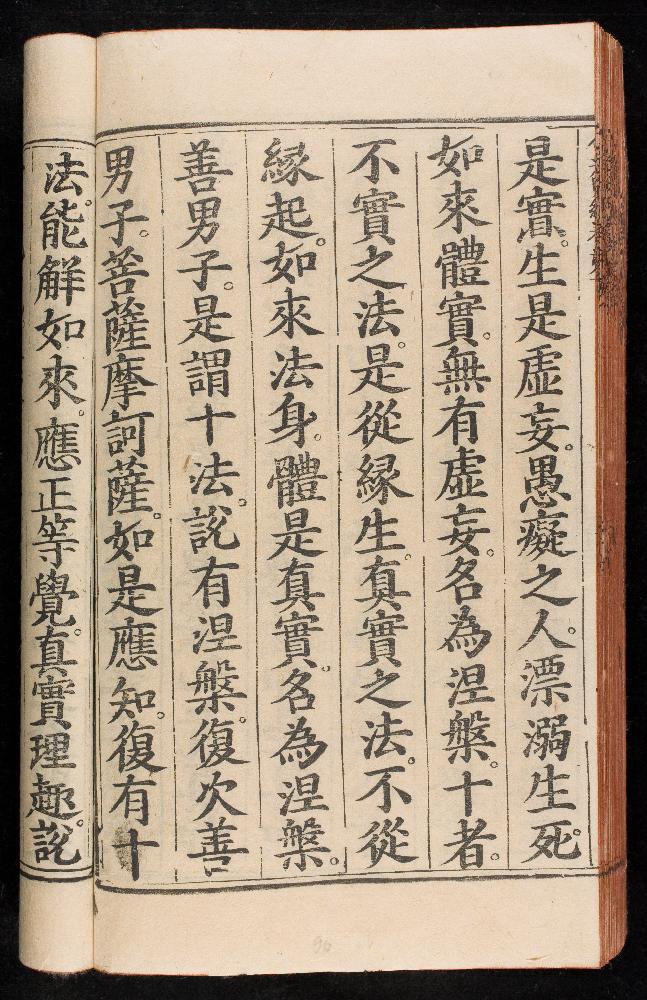 是實。生是虛妄。愚癡之人。漂溺生死。
如來體實。無有虛妄。名為涅槃。十者。
不實之法。是從緣生。真實之法。不從
緣起。如來法身。體是真實。名為涅槃。
善男子。是謂十法。說有涅槃。復次善
男子。菩薩摩訶薩。如是應知。復有十
法。能解如來。應正等覺。真實理趣。說
96